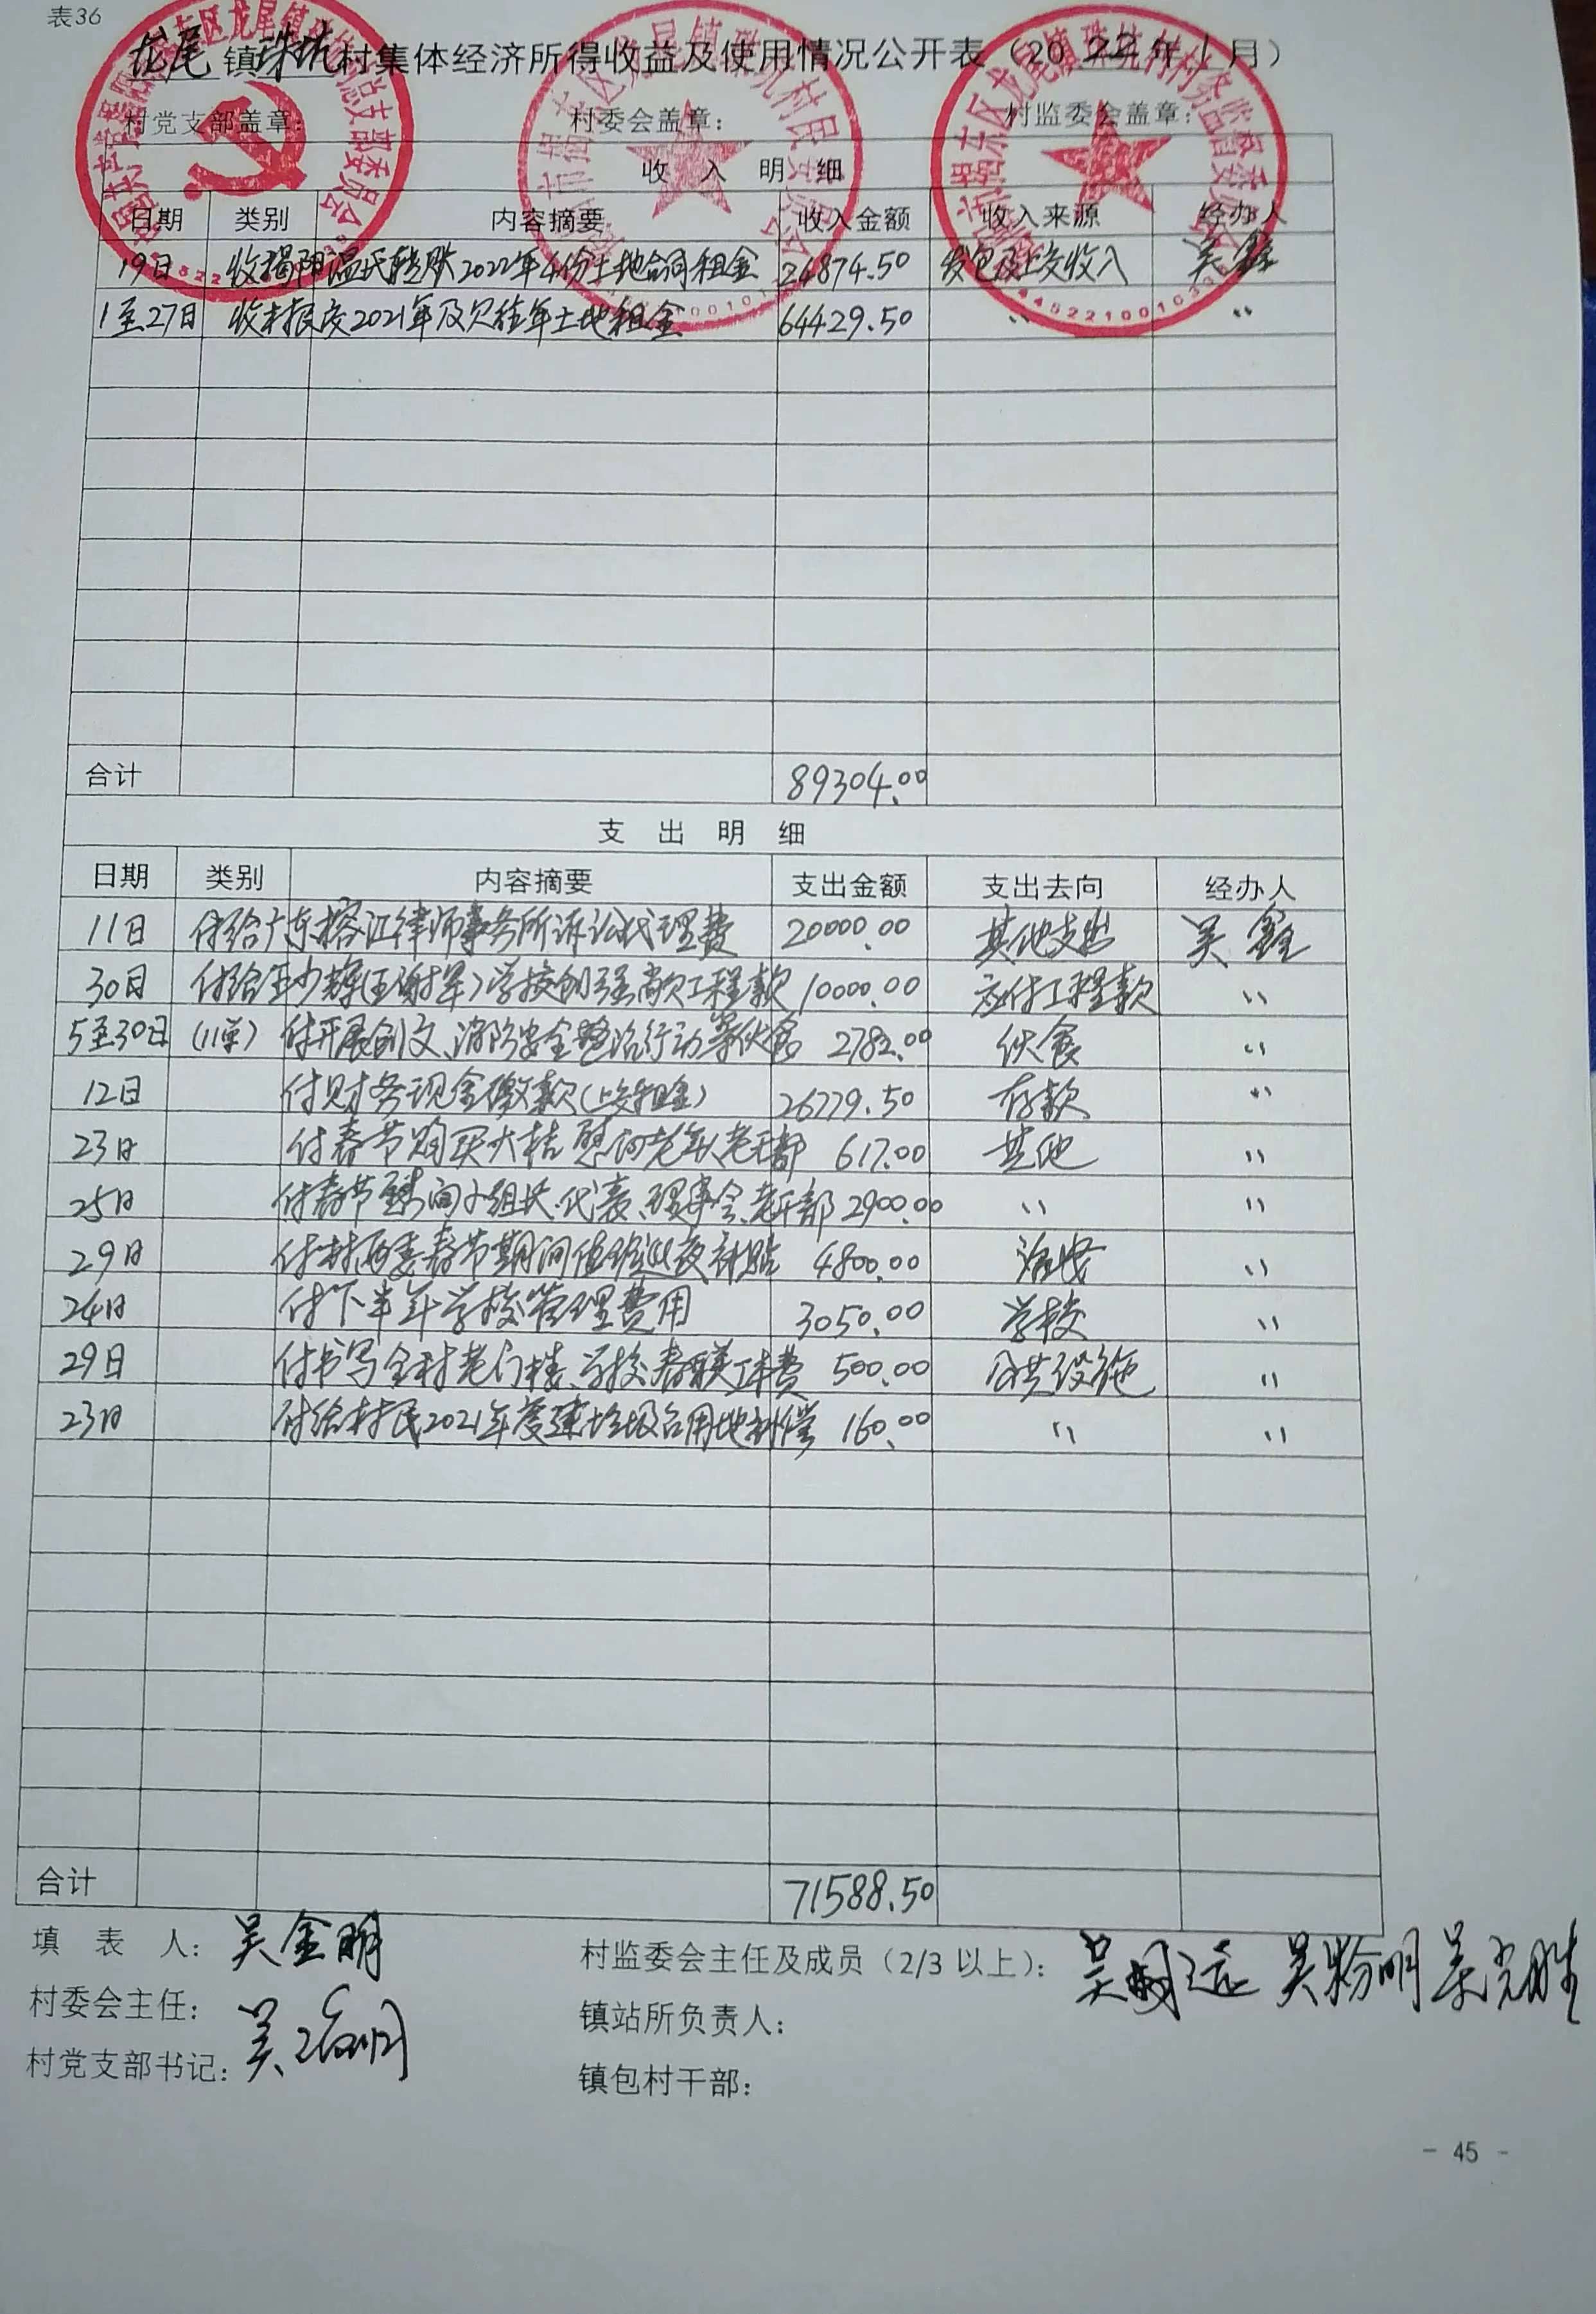 表36
龙尾镇珠坑村集体经济所得收益及使用情况公开表（2022年1月）
村党支部盖章： 村委会盖章： 村监委会盖章：
收 入 明 细
日期 类别 内容摘要 收入金额 收入来源 经办人
19日 收揭阳温氏转账2022年4份土地合同租金 24874.50 发包及上交收入 吴鑫
1至27日 收村报废2021年及欠往年土地租金 64429.50 〃 〃
合计 89304.00
支 出 明 细
日期 类别 内容摘要 支出金额 支出去向 经办人
11日 付给广东榕江律师事务所诉讼代理费 20000.00 其他支出 吴鑫
30日 付给 学校创强高欠工程款 10000.00 应付工程款 〃
5至30日 (11单) 付开展创文、消防安全整治行动等伙食 2782.00 伙食 〃
12日 付财务现金缴款(上交租金) 26779.50 存款 〃
23日 付春节购买大桔慰问老年人、老干部 617.00 其他 〃
25日 付春节慰问小组长、代表、理事会、老干部 2900.00 〃 〃
29日 付村两委春节期间值班巡夜补贴 4800.00 治安 〃
24日 付下半年学校管理费用 3050.00 学校 〃
29日 付书写全村老门楼、学校春联工本费 500.00 公共设施 〃
23日 付给村民2021年度建垃圾占用地补偿 160.00 〃 〃
合计 71588.50
填 表 人： 吴金明 村监委会主任及成员（2/3 以上）：
村委会主任： 镇站所负责人：
村党支部书记： 镇包村干部：
- 45 -